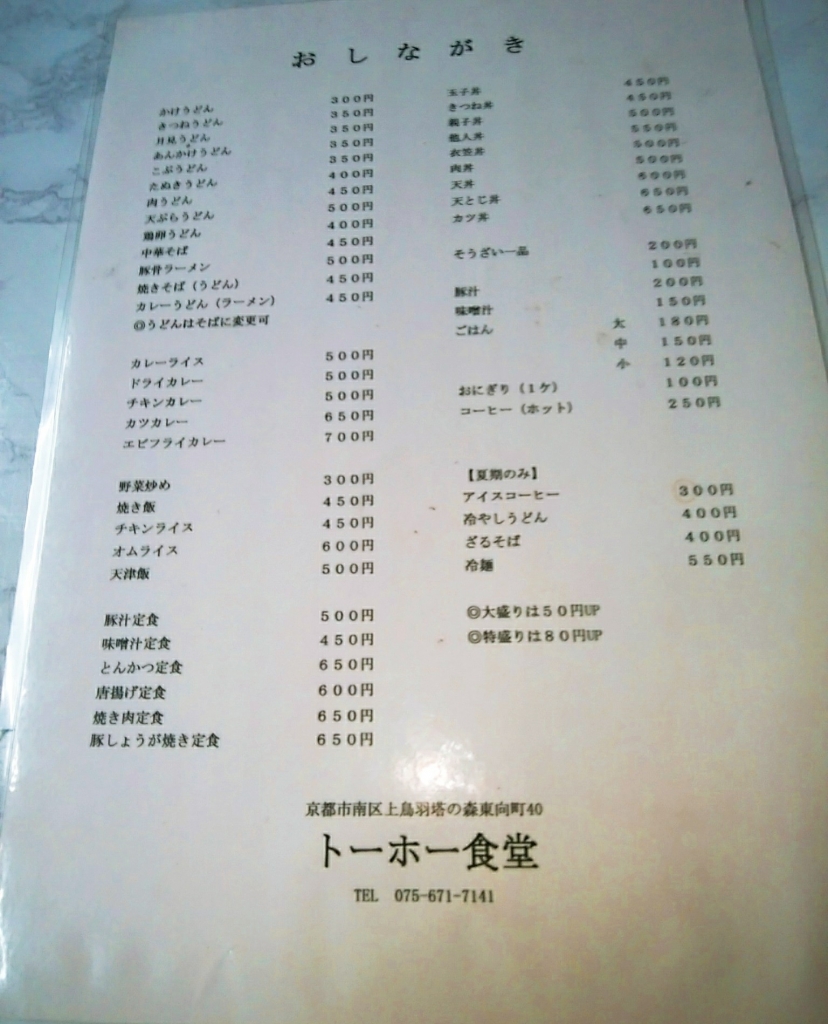 おしながき
かけうどん 300円
きつねうどん 350円
月見うどん 350円
あんかけうどん 350円
こぶうどん 350円
たぬきうどん 400円
肉うどん 450円
天ぷらうどん 500円
鶏卵うどん 400円
中華そば 450円
豚骨ラーメン 500円
焼きそば（うどん） 450円
カレーうどん（ラーメン） 450円
◎うどんはそばに変更可
カレーライス 500円
ドライカレー 500円
チキンカレー 500円
カツカレー 650円
エビフライカレー 700円
野菜炒め 300円
焼き飯 450円
チキンライス 450円
オムライス 600円
天津飯 500円
豚汁定食 500円
味噌汁定食 450円
とんかつ定食 650円
唐揚げ定食 600円
焼き肉定食 650円
豚しょうが焼き定食 650円
玉子丼 450円
きつね丼 450円
親子丼 500円
他人丼 550円
衣笠丼 500円
肉丼 500円
天丼 600円
天とじ丼 650円
カツ丼 650円
そうざい一品 200円
100円
豚汁 200円
味噌汁 150円
ごはん 大 180円
中 150円
小 120円
おにぎり（1ケ） 100円
コーヒー（ホット） 250円
【夏期のみ】
アイスコーヒー 300円
冷やしうどん 400円
ざるそば 400円
冷麺 550円
◎大盛りは50円UP
◎特盛りは80円UP
京都市南区上鳥羽塔の森東向町40
トーホー食堂
TEL 075-671-7141